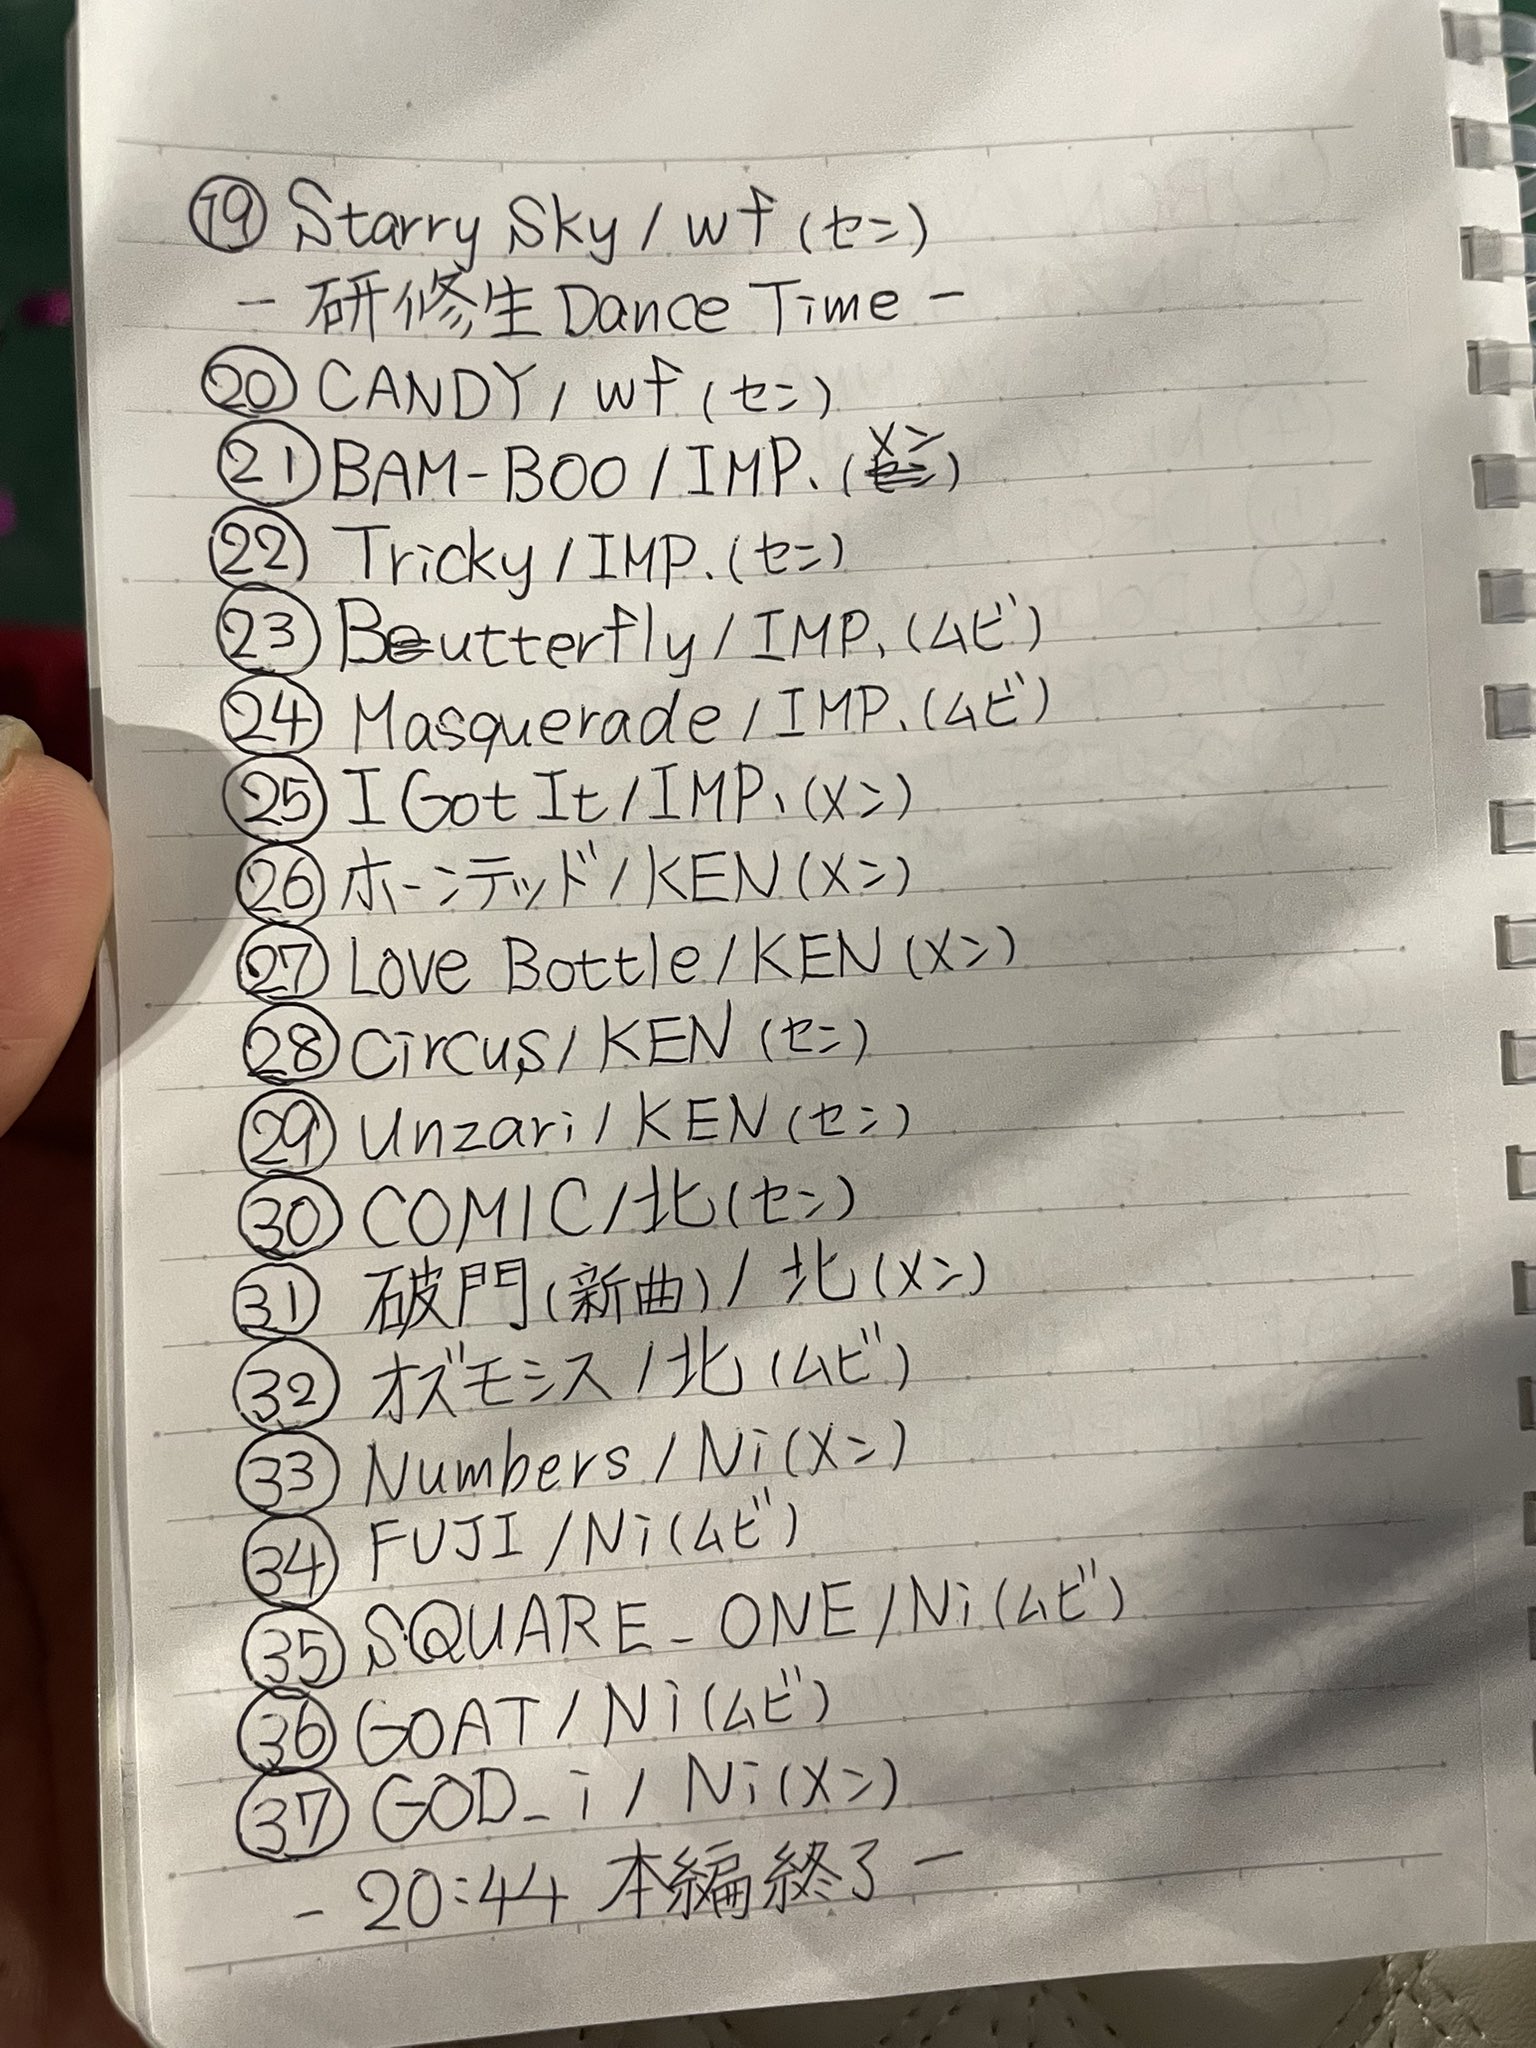 ⑲ Starry Sky / wf (セン)
- 研修生 Dance Time -
⑳ CANDY / wf (セン)
㉑ BAM-BOO / IMP. (メン)
㉒ Tricky / IMP. (セン)
㉓ Butterfly / IMP. (ムビ)
㉔ Masquerade / IMP. (ムビ)
㉕ I Got It / IMP. (メン)
㉖ ホーンテッド / KEN (メン)
㉗ Love Bottle / KEN (メン)
㉘ Circus / KEN (セン)
㉙ Unzari / KEN (セン)
㉚ COMIC / 北 (セン)
㉛ 破門 (新曲) / 北 (メン)
㉜ オズモシス / 北 (ムビ)
㉝ Numbers / Ni (メン)
㉞ FUJI / Ni (ムビ)
㉟ SQUARE_ONE / Ni (ムビ)
㊱ GOAT / Ni (ムビ)
㊲ GOD_i / Ni (メン)
- 20:44 本編終了 -